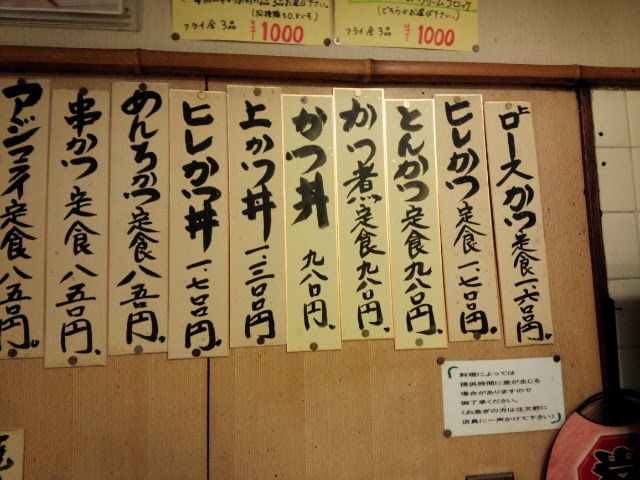 フライ全3品 ¥1000
(どちらかお選び下さい。)
フライ全3品 ¥1000
上ロースかつ定食 一、六〇〇円、
ヒレかつ定食 一、七〇〇円。
とんかつ定食 九八〇円、
かつ煮定食 九八〇円、
かつ丼 九八〇円、
上かつ丼 一、三〇〇円
ヒレかつ丼 一、七〇〇円、
めんちかつ定食 八五〇円、
串かつ定食 八五〇円、
アジフライ定食 八五〇円。
料理によっては
提供時間に差が生じる
場合がありますので
御了承ください。
(お急ぎの方は注文前に
店員に一声かけて下さい)